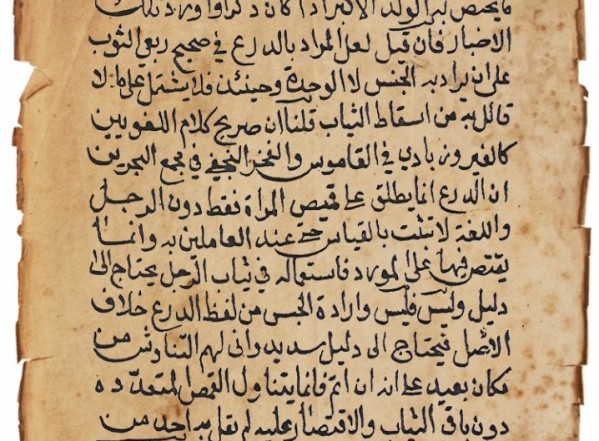 ما يختص به الولد الاكبر اذا كان ذكرا وورد ذلك
الاخبار فان قيل لعل المراد بالدرع في صحيح ربعي الثوب
على ان يراد به الجنس لا الوحدة وحينئذ فلا يشتمل على ما لا
قائل به من اسقاط الثياب قلنا ان صريح كلام اللغويين
كالفيروزبادي في القاموس والفخر النجفي في مجمع البحرين
ان الدرع انما يطلق على قميص المراة فقط دون الرجل
واللغة لا تثبت بالقياس حتى عند العاملين به وانما
يقتصر فيها على المورد فاستعماله في ثياب الرجل يحتاج الى
دليل وليس فليس وارادة الجنس من لفظ الدرع خلاف
الاصل فيحتاج الى دليل سديد وانى لهم التناوش من
مكان بعيد على انه ان اتم فانما يتناول القمص المتعدده
دون باقي الثياب والاقتصار عليه لم يقل به احد من